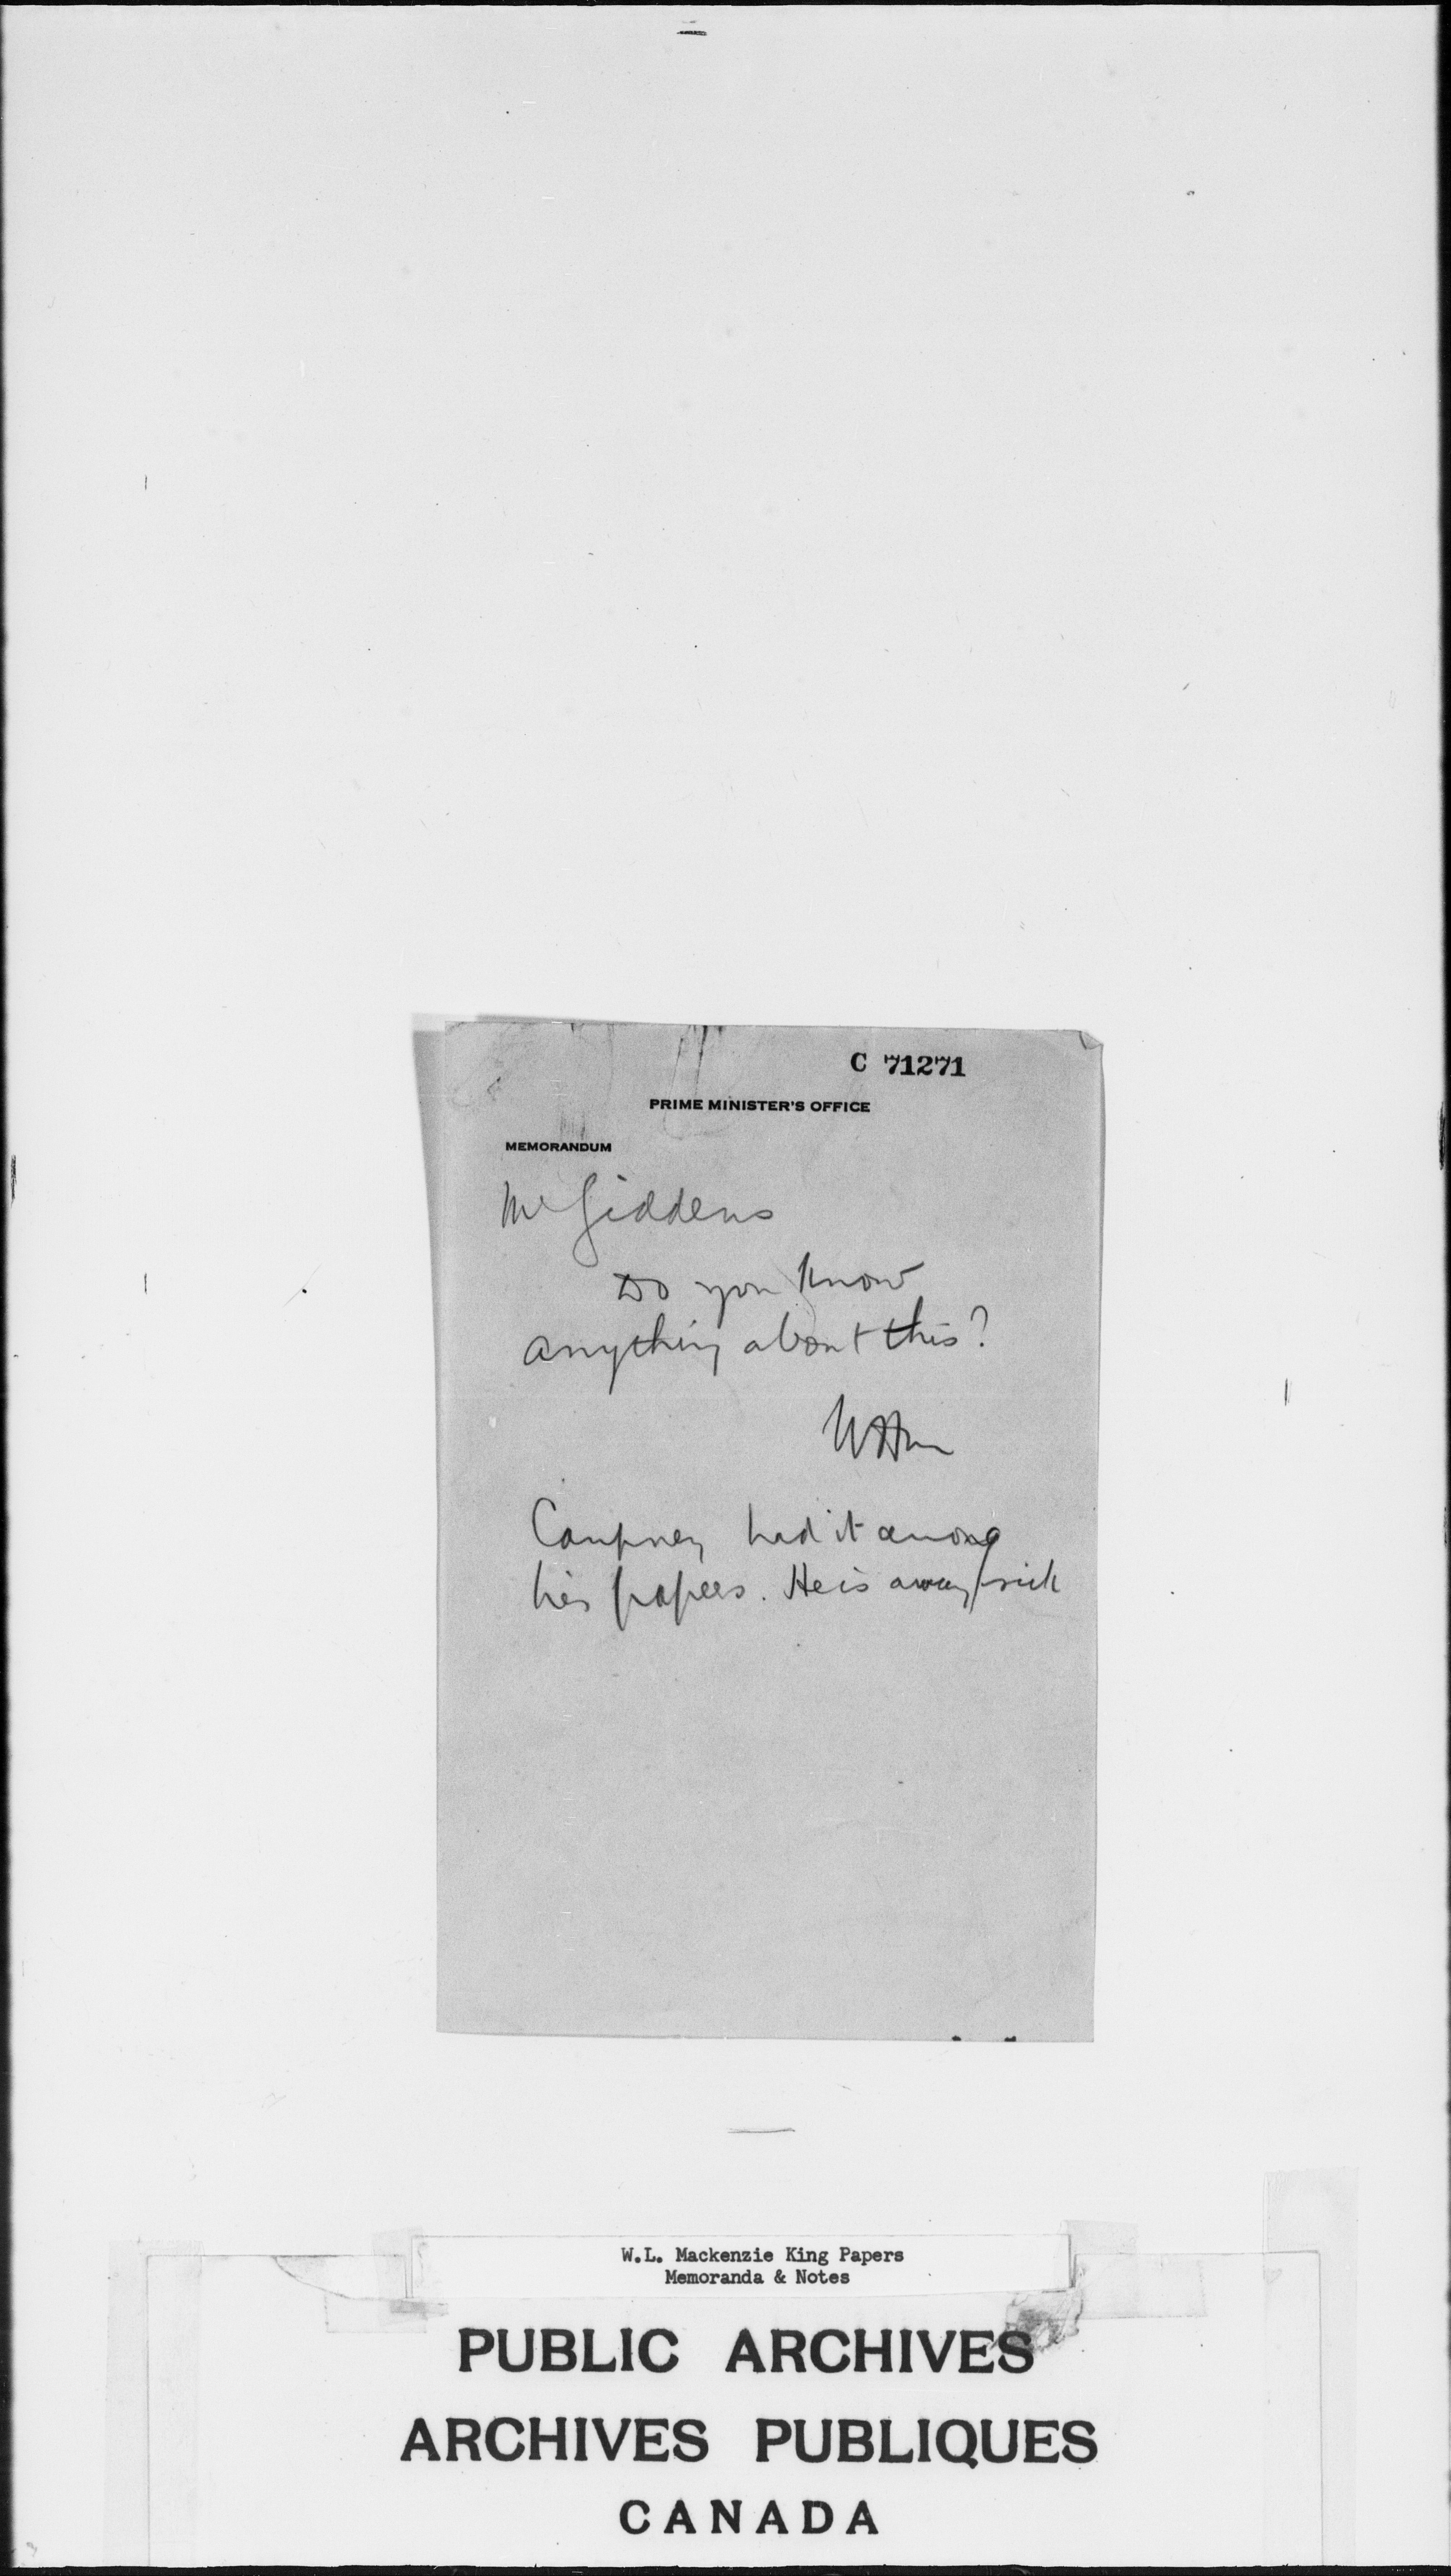 C 71271
PRIME MINISTER'S OFFICE
MEMORANDUM
Mr Giddens
Do you know
anything about this?
Campney had it among
his papers. He is away sick
W.L. Mackenzie King Papers
Memoranda & Notes
PUBLIC ARCHIVES
ARCHIVES PUBLIQUES
CANADA